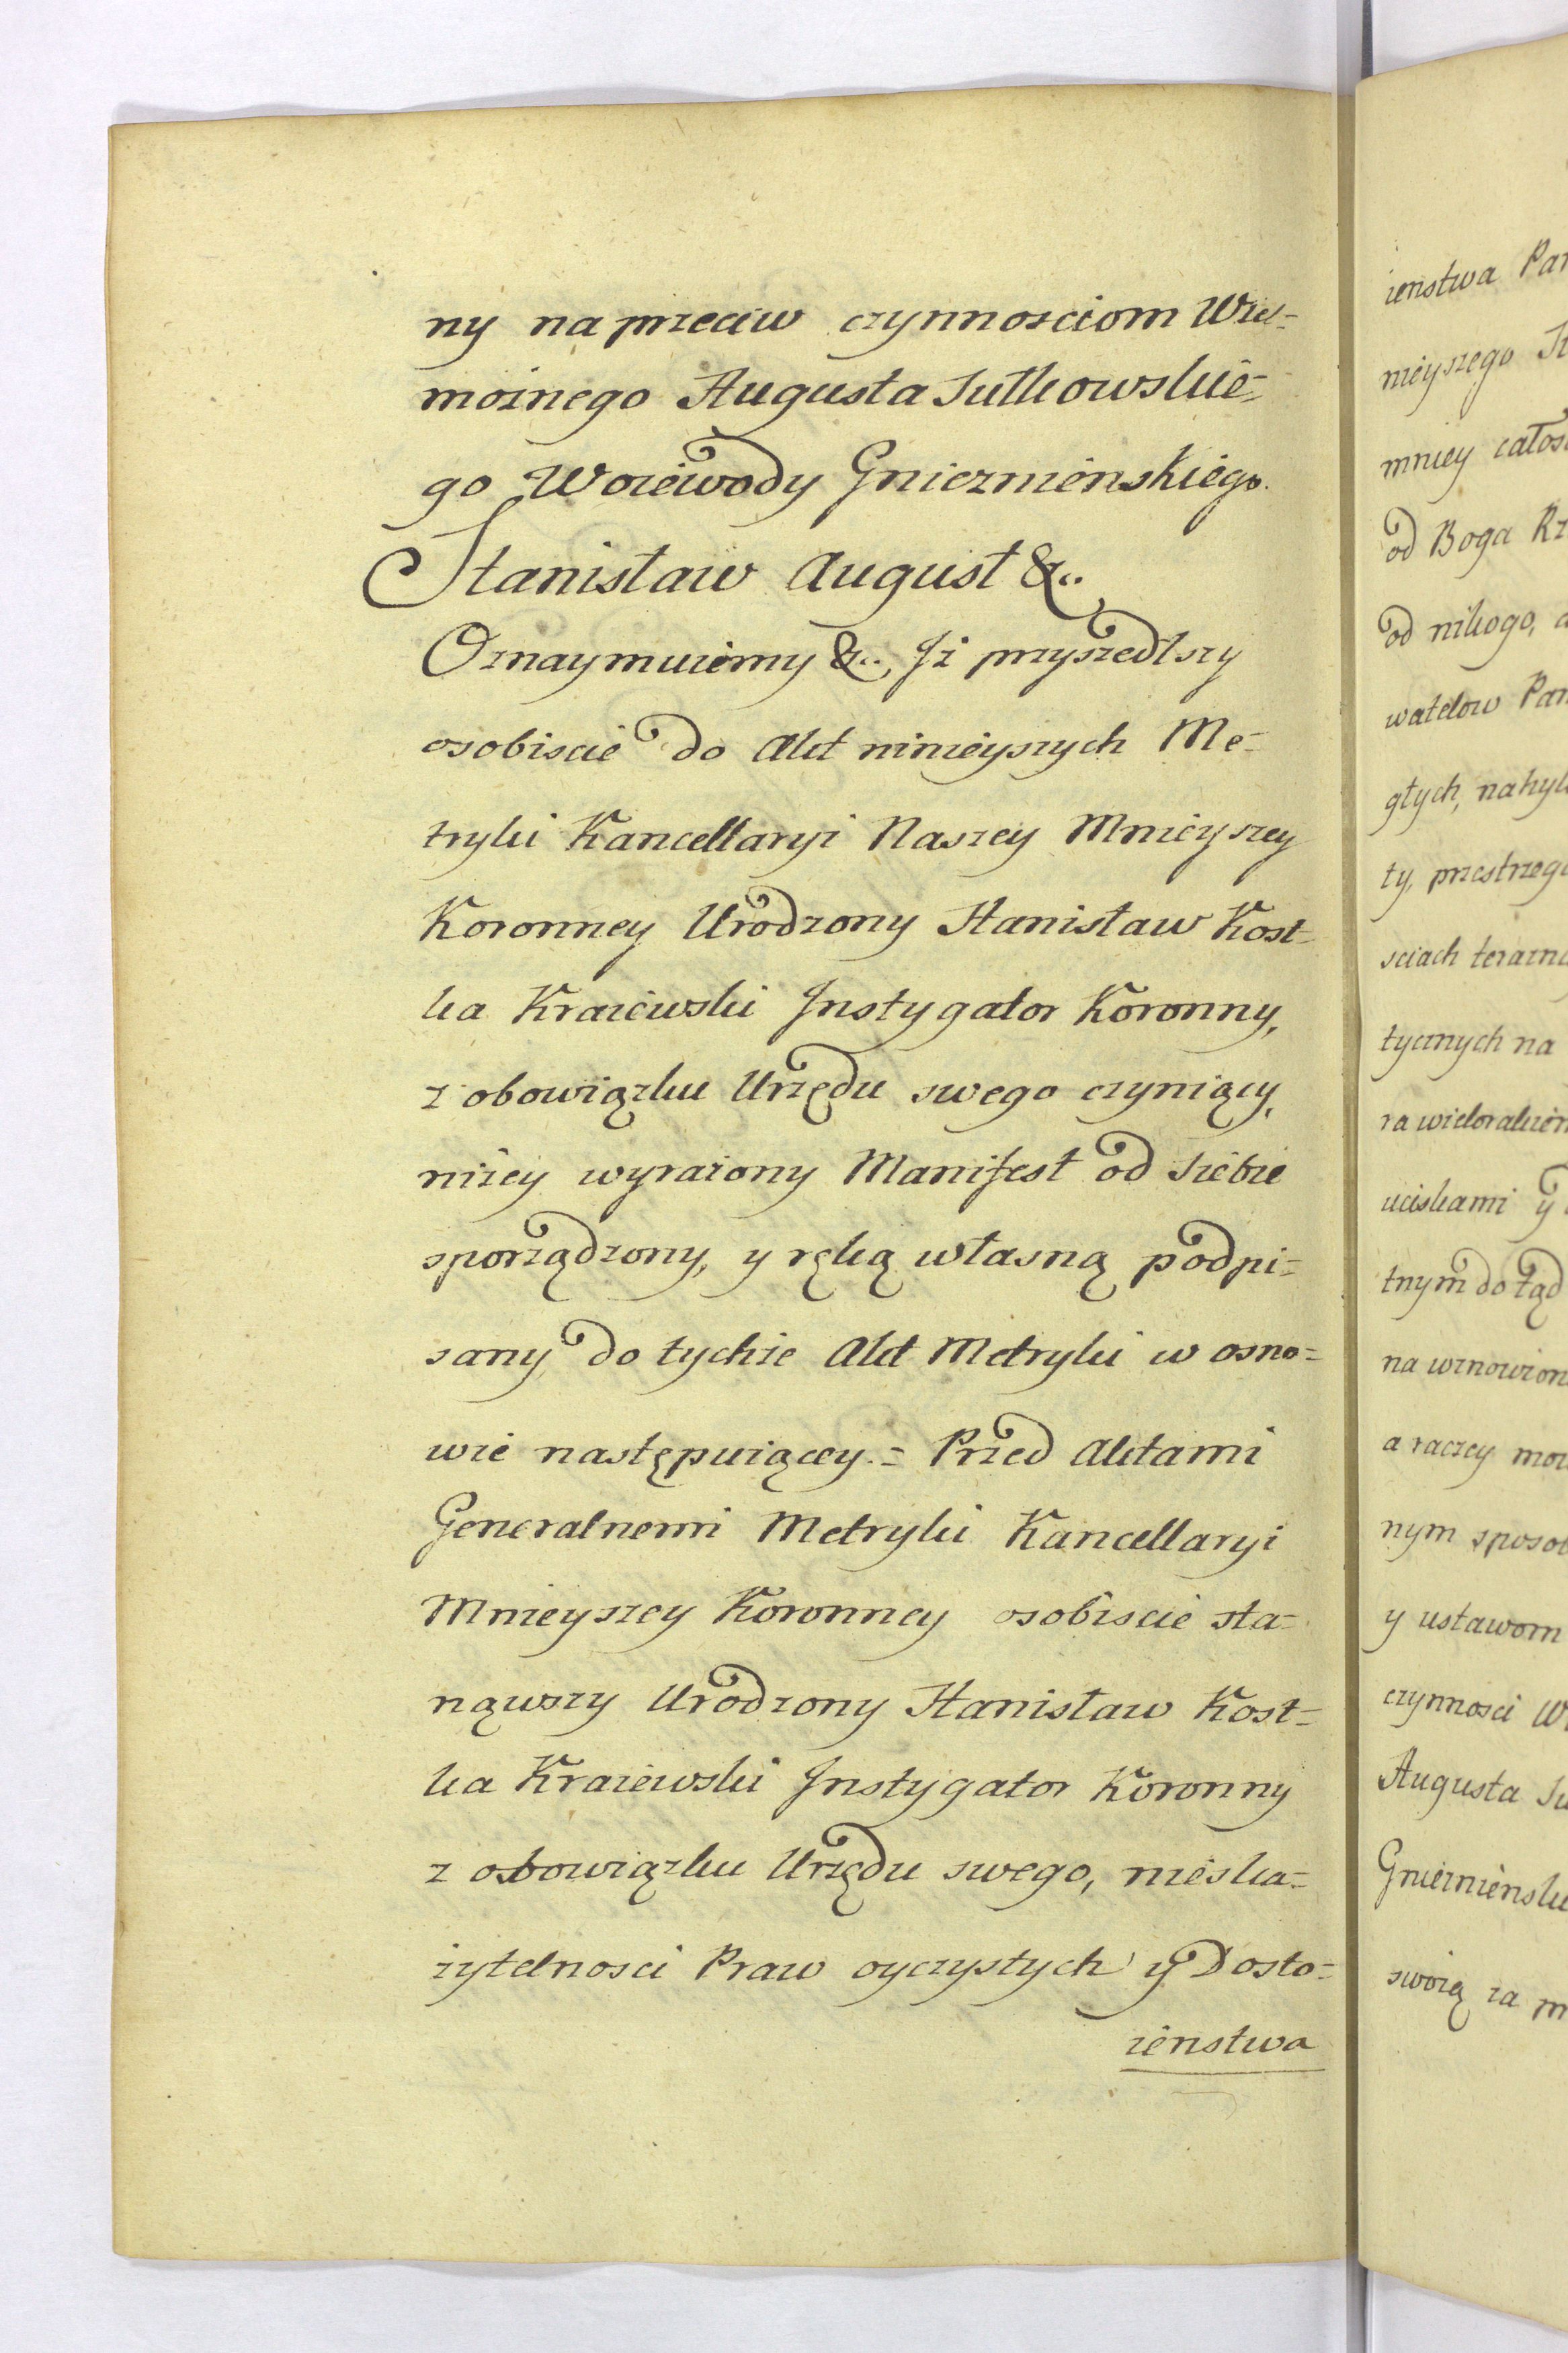 ny naprzeciw czynnosciom Wiel=
можnego Augusta Sułkowskie=
go Woiewody Gnieznienskiego.
Stanisław August &..
Oznaymuiemy &.. Iż przyszedłszy
osobiscie do Akt ninieyszych Me=
tryki Kancellaryi Naszey Mnieyszey
Koronney Urodzony Stanisław Kost=
ka Kraiewski Instygator Koronny,
z obowiązku Urzędu swego czyniący,
niżey wyrażony Manifest od siebie
sporządzony, y ręką własną podpi=
sany do tychże Akt Metryki w osno=
wie następuiącey.= Przed Aktami
Generalnemi Metryki Kancellaryi
Mnieyszey Koronney osobiscie sta=
nąwszy Urodzony Stanisław Kost=
ka Kraiewski Instygator Koronny
z obowiązku Urzędu swego, nieska=
zytelnosci Praw oyczystych y Dosto=
ienstwa
ienstwa
nieyszego
mniey
od Boga
od nikogo,
watelow
głych,
ty,
sciach
tycznych na
uciskami y
tnym do tąd
a raczey
nym
y ustawom
czynnosci
Augusta
swoią za